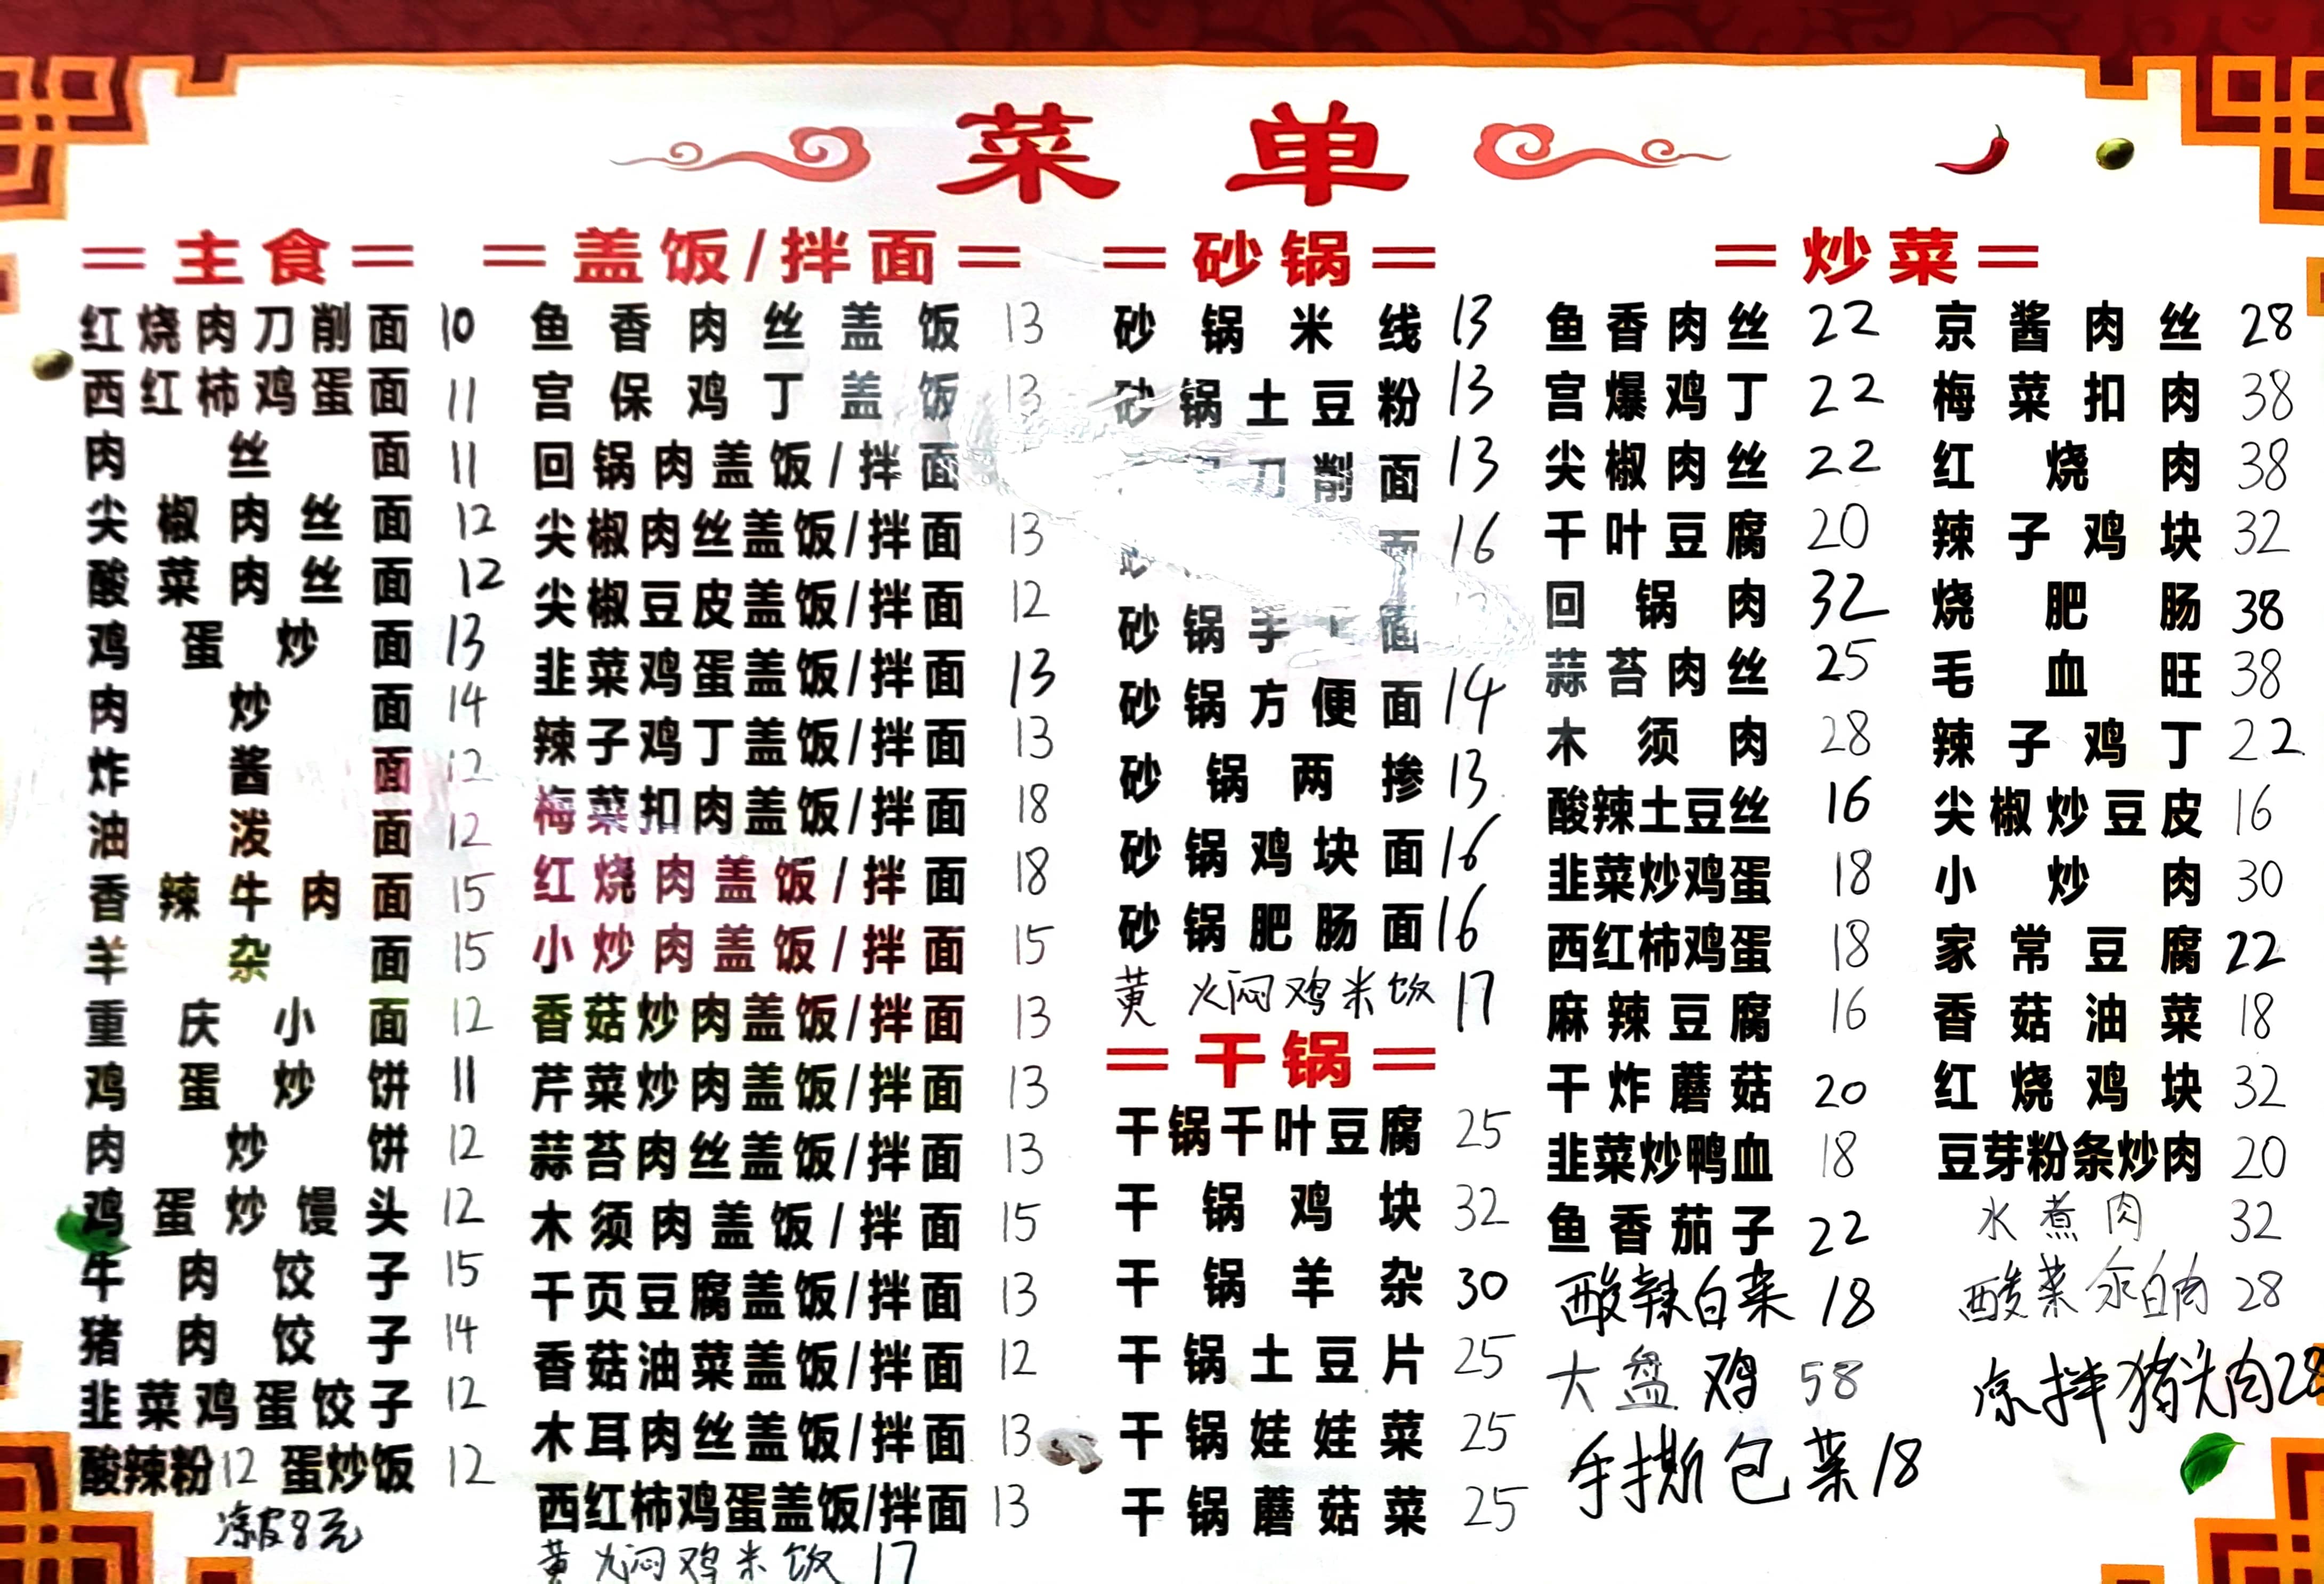 菜单
主食
红烧肉刀削面 10
西红柿鸡蛋面 11
肉丝面 11
尖椒肉丝面 12
酸菜肉丝面 12
鸡蛋炒面 13
肉炒面 14
炸酱面 12
油泼面 12
香辣牛肉面 15
羊杂面 15
重庆小面 12
鸡蛋炒饼 11
肉炒饼 12
鸡蛋炒馒头 12
牛肉饺子 15
猪肉饺子 14
韭菜鸡蛋饺子 12
酸辣粉 12 蛋炒饭 12
凉皮8元
盖饭/拌面
鱼香肉丝盖饭 13
宫保鸡丁盖饭 13
回锅肉盖饭/拌面
尖椒肉丝盖饭/拌面 13
尖椒豆皮盖饭/拌面 12
韭菜鸡蛋盖饭/拌面 13
辣子鸡丁盖饭/拌面 13
梅菜扣肉盖饭/拌面 18
红烧肉盖饭/拌面 18
小炒肉盖饭/拌面 15
香菇炒肉盖饭/拌面 13
芹菜炒肉盖饭/拌面 13
蒜苔肉丝盖饭/拌面 13
木须肉盖饭/拌面 15
千页豆腐盖饭/拌面 13
香菇油菜盖饭/拌面 12
木耳肉丝盖饭/拌面 13
西红柿鸡蛋盖饭/拌面 13
黄火闷鸡米饭 17
砂锅
砂锅米线 13
砂锅土豆粉 13
刀削面 13
面 16
砂锅手 面
砂锅方便面 14
砂锅两掺 13
砂锅鸡块面 16
砂锅肥肠面 16
黄火闷鸡米饭 17
干锅
干锅千叶豆腐 25
干锅鸡块 32
干锅羊杂 30
干锅土豆片 25
干锅娃娃菜 25
干锅蘑菇菜 25
炒菜
鱼香肉丝 22
宫爆鸡丁 22
尖椒肉丝 22
千叶豆腐 20
回锅肉 32
蒜苔肉丝 25
木须肉 28
酸辣土豆丝 16
韭菜炒鸡蛋 18
西红柿鸡蛋 18
麻辣豆腐 16
干炸蘑菇 20
韭菜炒鸭血 18
鱼香茄子 22
酸辣白菜 18
大盘鸡 58
手撕包菜 18
京酱肉丝 28
梅菜扣肉 38
红烧肉 38
辣子鸡块 32
烧肥肠 38
毛血旺 38
辣子鸡丁 22
尖椒炒豆皮 16
小炒肉 30
家常豆腐 22
香菇油菜 18
红烧鸡块 32
豆芽粉条炒肉 20
水煮肉 32
酸菜汆白肉 28
凉拌猪头肉 28